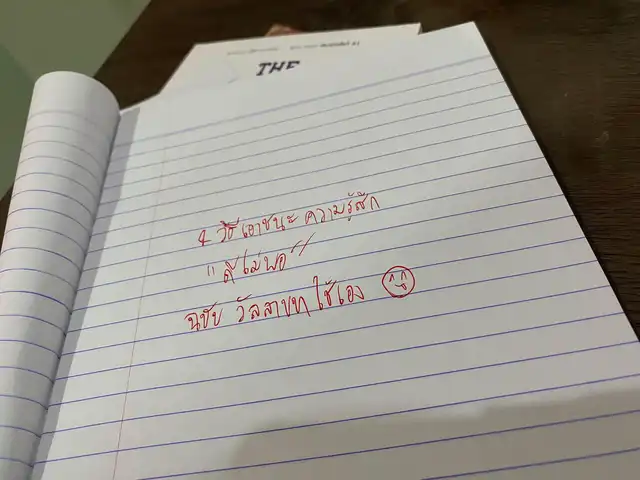 THE
4 วิธีเอาชนะ ความรู้สึก
"ดีไม่พอ"
ฉบับ วัลลาบหา ใช้เอง